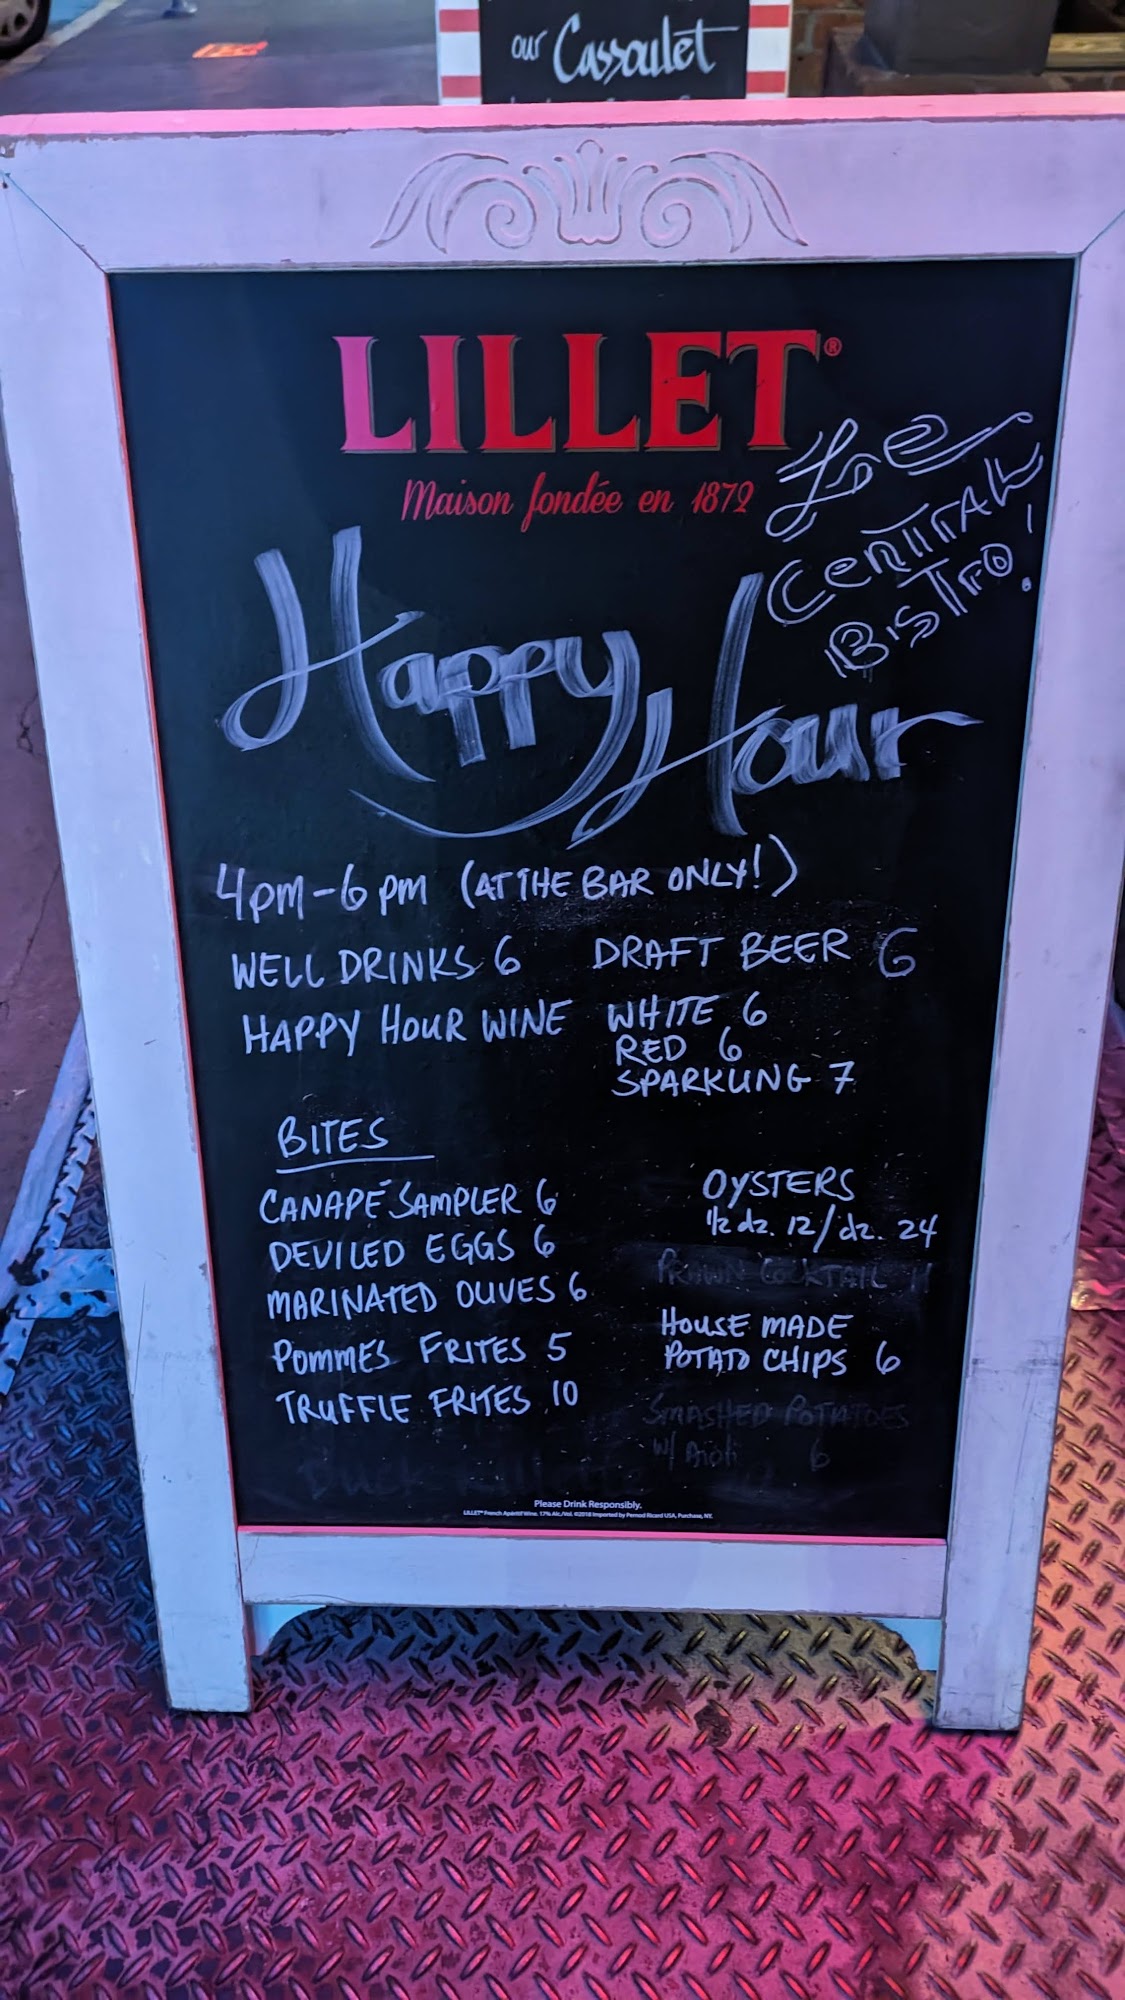 our Cassoulet
LILLET®
Maison fondée en 1872
Le
CENTRAL
BISTRO!
Happy Hour
4pm-6pm (AT THE BAR ONLY!)
WELL DRINKS 6 DRAFT BEER 6
HAPPY HOUR WINE WHITE 6
RED 6
SPARKLING 7
BITES
CANAPÉ SAMPLER 6
DEVILED EGGS 6
MARINATED OLIVES 6
POMMES FRITES 5
TRUFFLE FRITES 10
OYSTERS
1/2 dz. 12/dz. 24
PRAWN COCKTAIL 11
HOUSE MADE
POTATO CHIPS 6
SMASHED POTATOES
W/ Aioli 6
Duck
Please Drink Responsibly.
LILLET® French Apéritif Wine. 17% Alc./Vol. ©2018 Imported by Pernod Ricard USA, Purchase, NY.